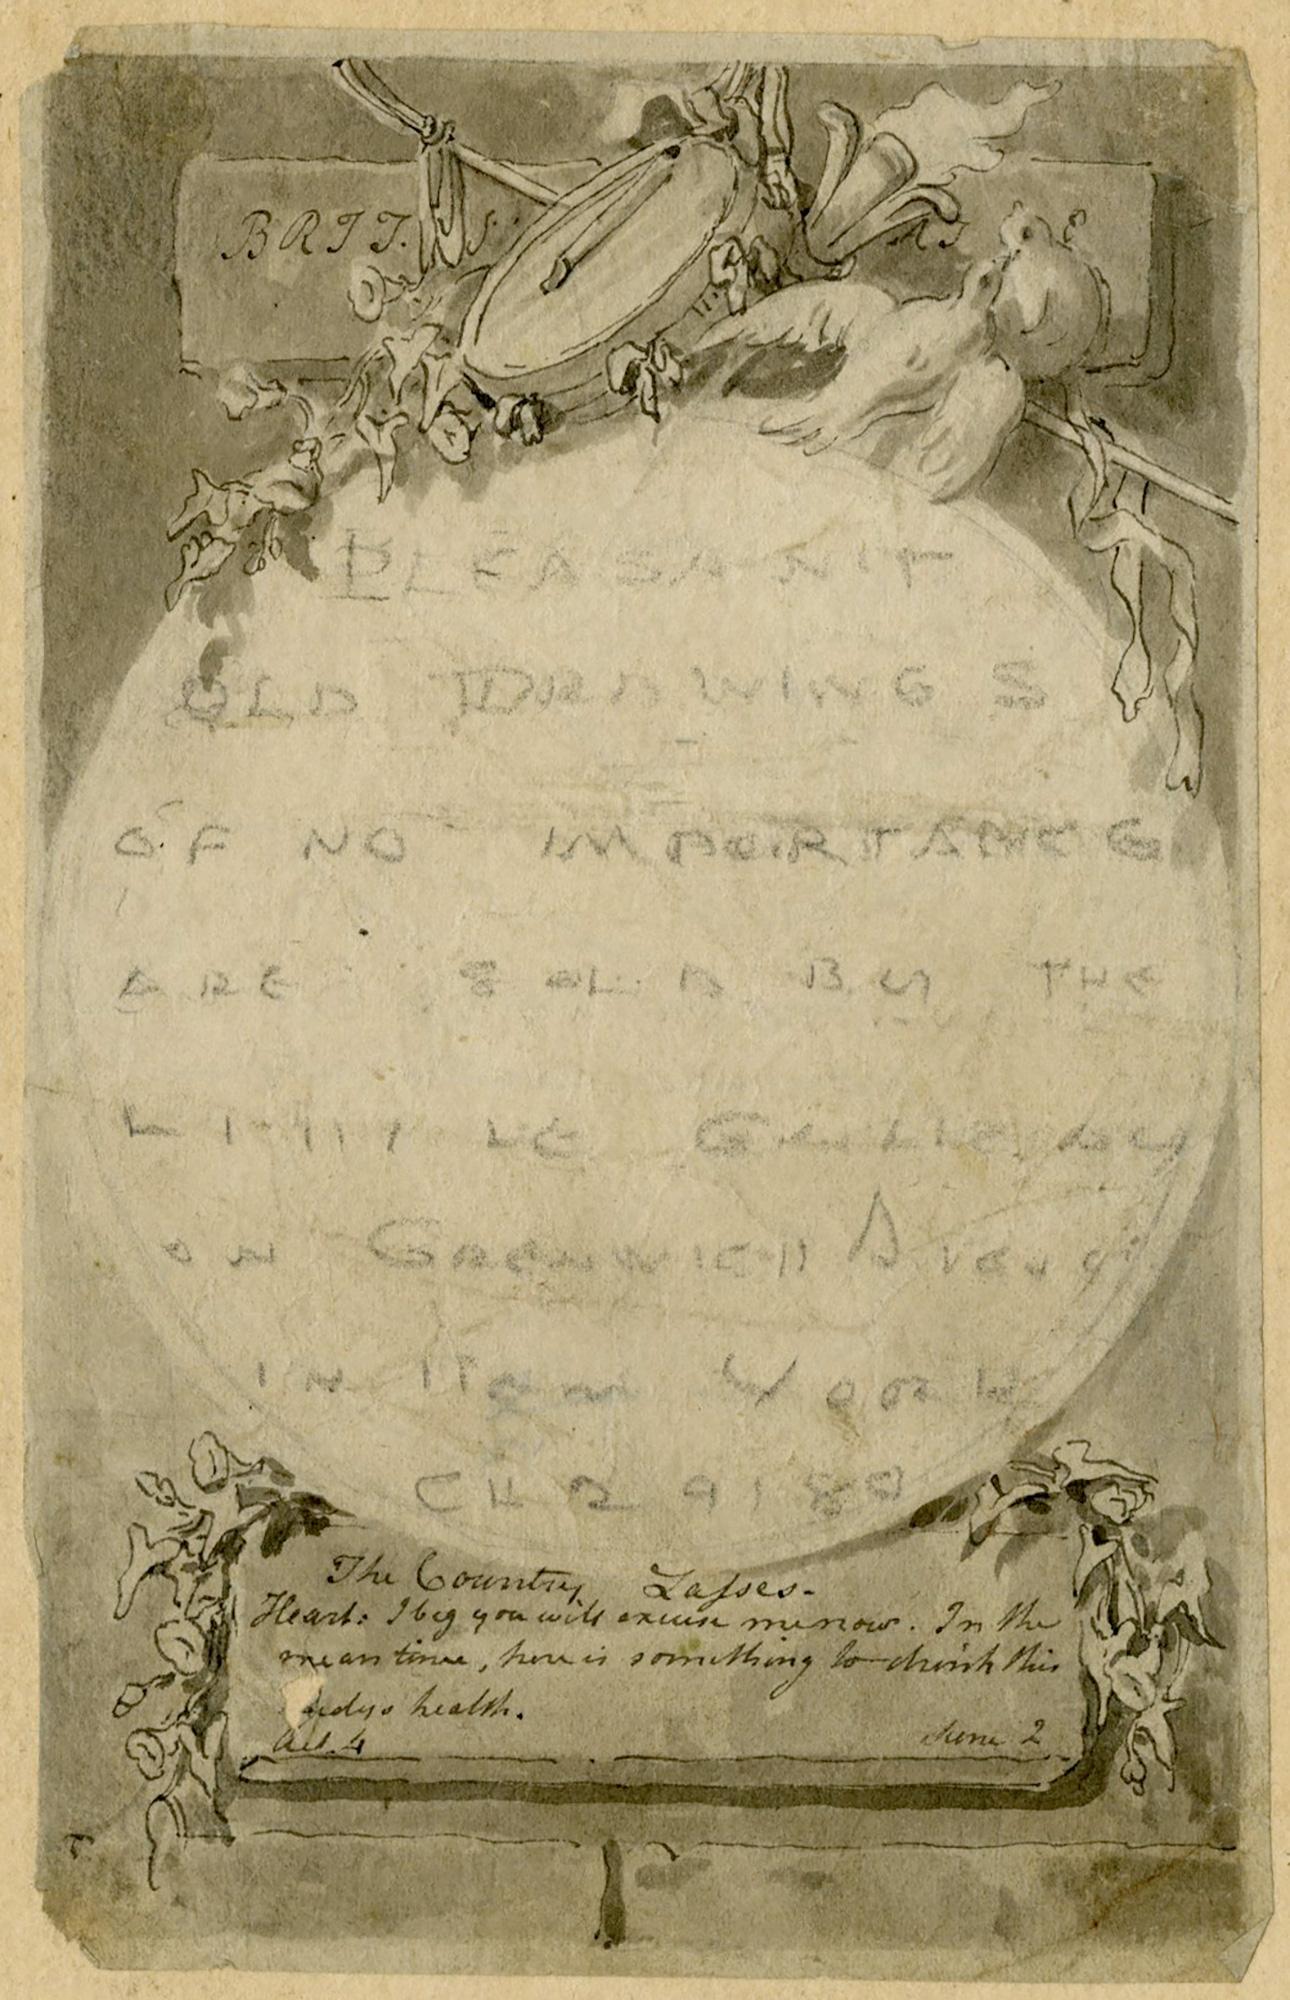 BRIT. S.
PLEASANT
OLD DRAWINGS
OF NO IMPORTANCE
ARE SOLD BY THE
LITTLE GALLERY
ON GREENWICH
IN NEW YORK
CH 2 9189
The Country Lasses.
Heart: I beg you will excuse me now. In the
mean time, here is something to drink this
Ladys health.
Act. 4 Scene 2